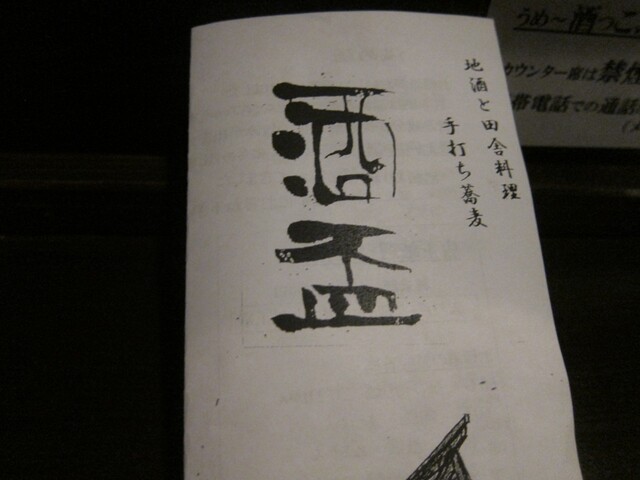 地酒と田舎料理
手打ち蕎麦
酒盃
うめ〜酒っこ
カウンター席は禁煙
帯電話での通話